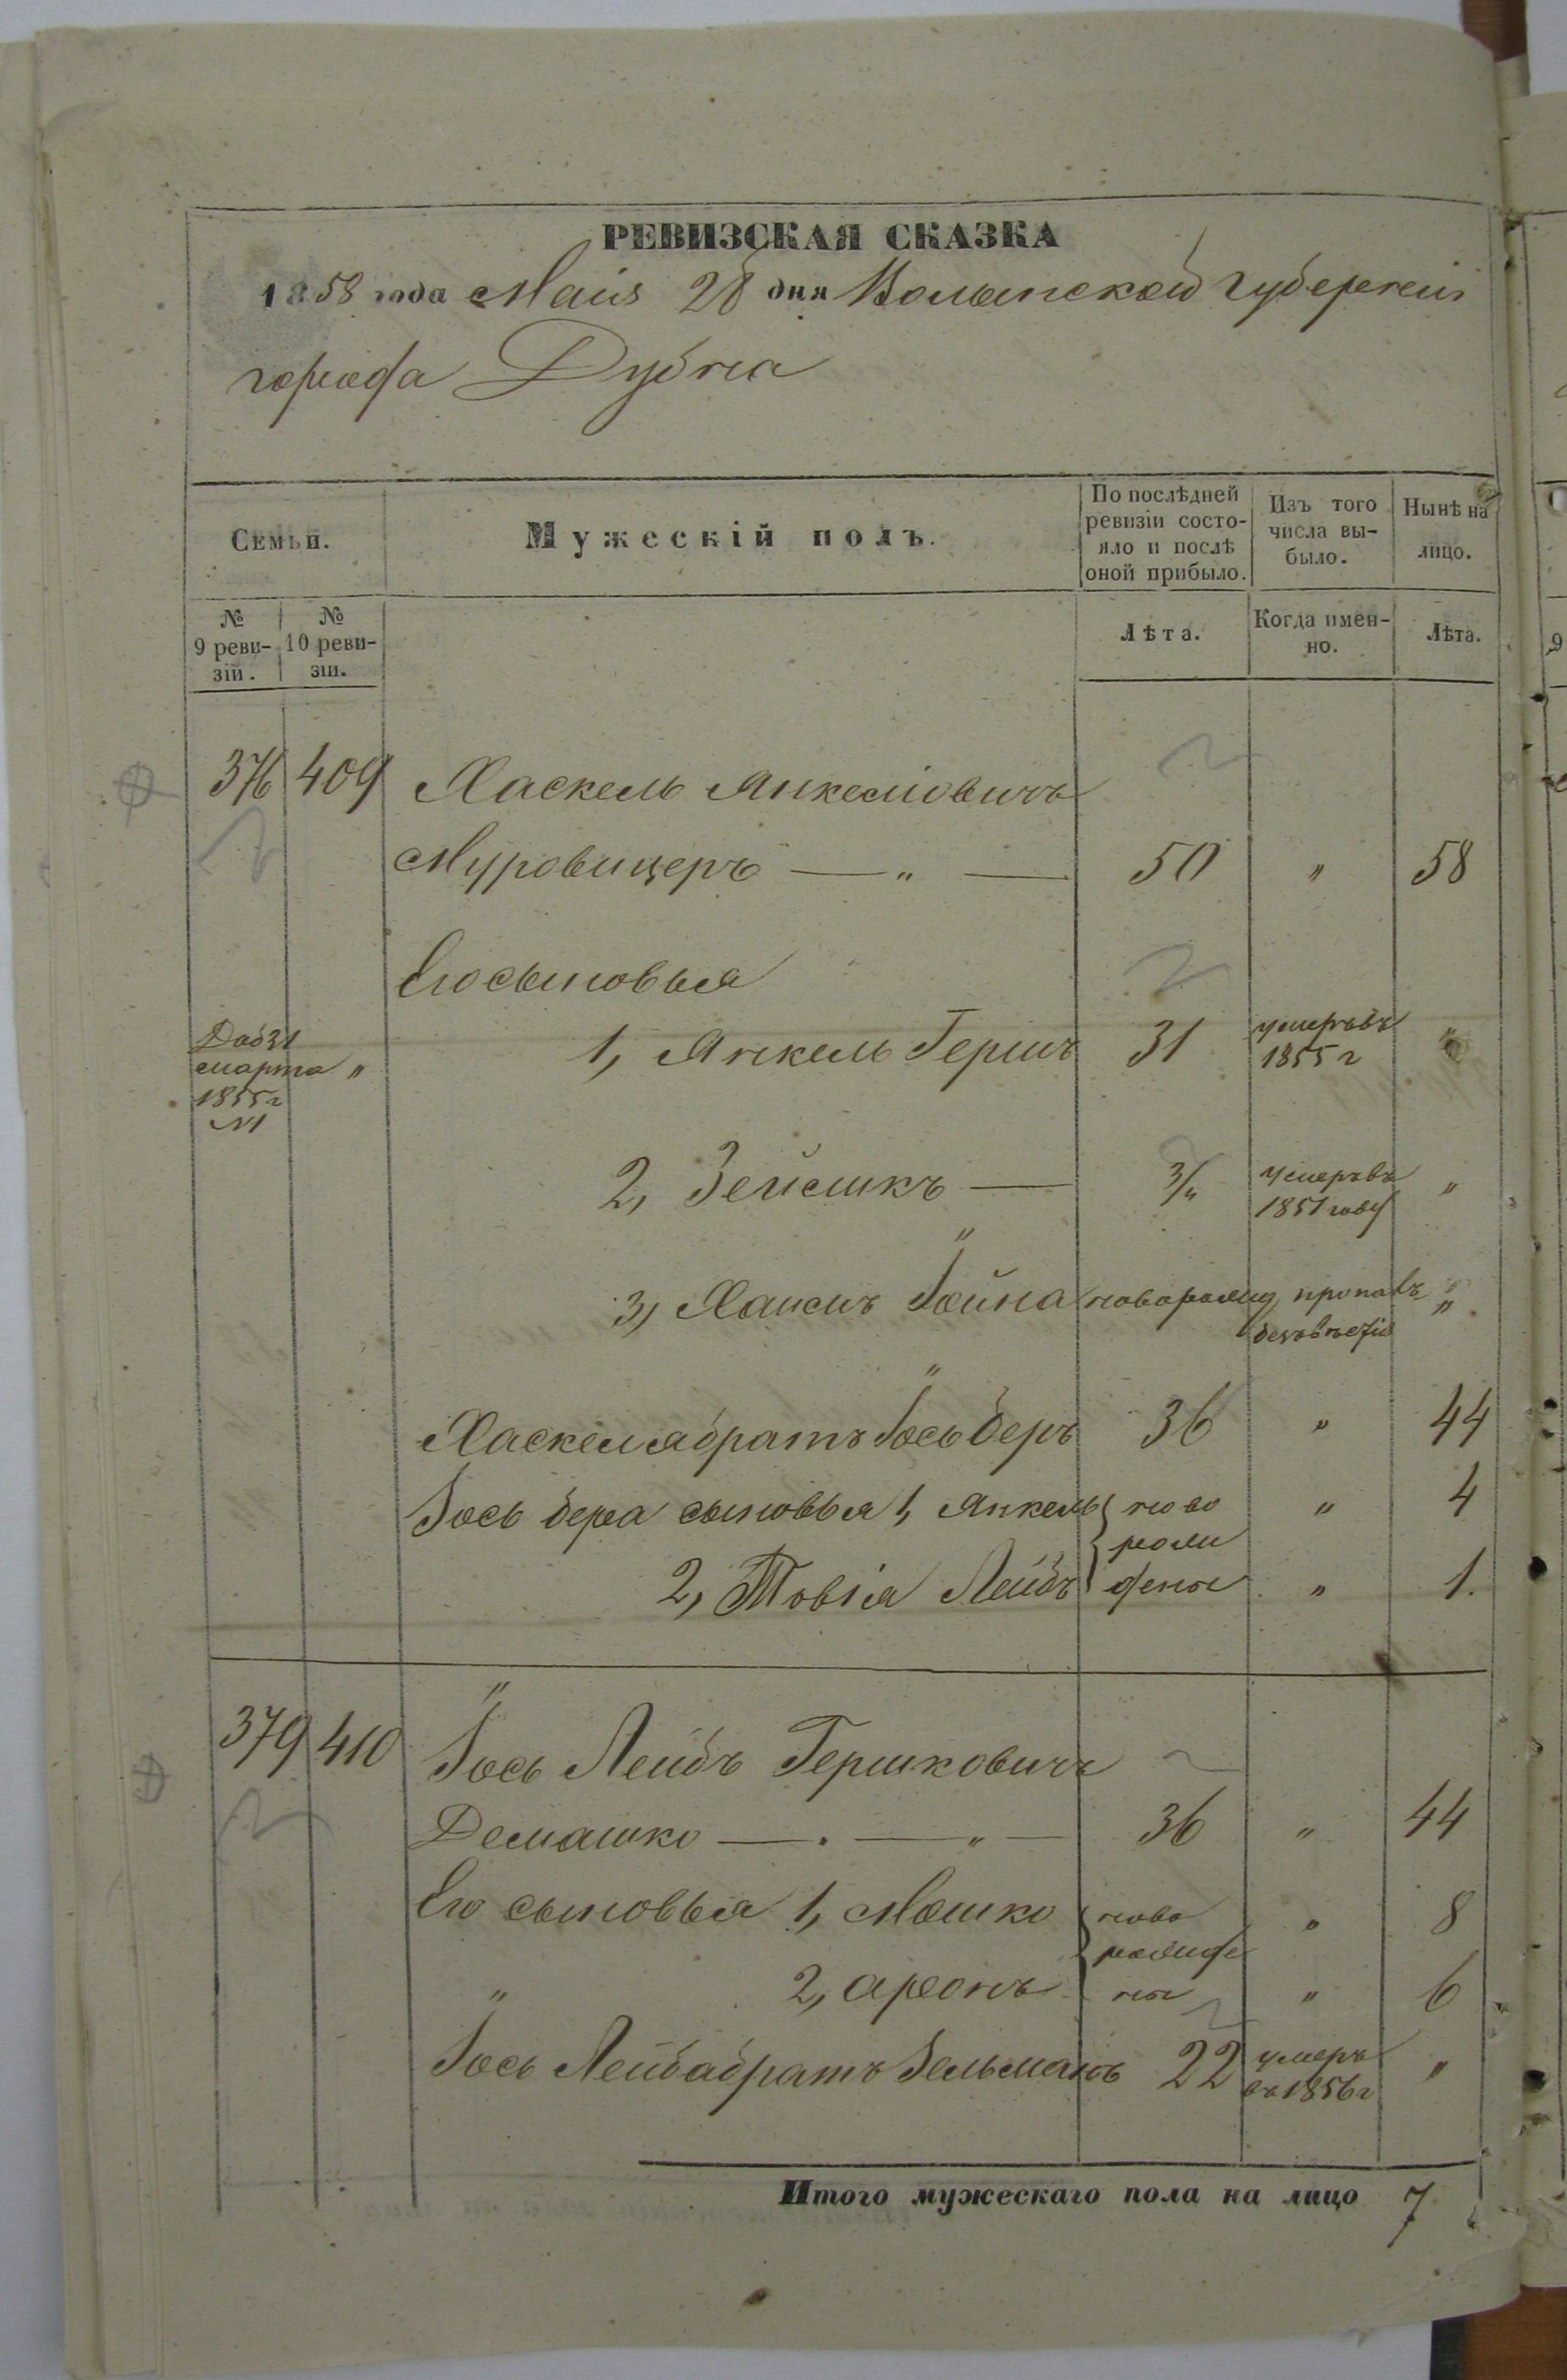 РЕВИЗСКАЯ СКАЗКА
1858 года Маія 28 дня Волынской губерніи
города Дубна
Семьи.
Мужескій полъ.
По послѣдней ревизіи состо-
яло и послѣ
оной прибыло.
Изъ того
числа вы-
было.
Нынѣ на
лицо.
№
9 реви-
зіи.
№
10 реви-
зіи.
Лѣта.
Когда имен-
но.
Лѣта.
376 409 Хаскель Янкеліовичъ
Муровицеръ — „ — 50 „ 58
Его сыновья
1, Янкель Гершъ 31 умеръ въ 1855 г „
Доб 31
марта „
1855 г
№1
2, Зейсикъ — 3/„ умеръ въ 1851 году „
3, Хаимъ Іойна новорожд, пропавъ „
безъвѣстно
Хаскеля братъ Іось беръ 36 „ 44
Іось бера сыновья 1, Янкель ново „ 4
рожд
2, Товія Лейбъ дены „ 1.
379 410 Іось Лейбъ Гершковичъ
Демашко — . — „ — 36 „ 44
Его сыновья 1, Мошко ново „ 8
рожде
2, Аронъ ны „ 6
Іось Лейба братъ Зельманъ 22 умеръ въ 1856 г „
Итого мужескаго пола на лицо 7